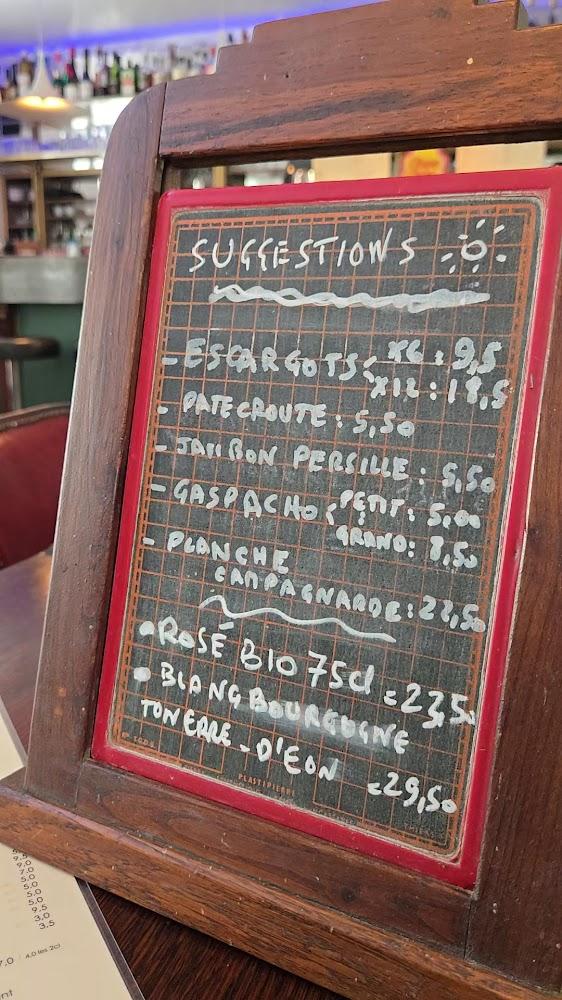 SUGGESTIONS
- ESCARGOTS X6 : 9,5
X12 : 18,5
- PATE CROUTE : 5,50
- JAMBON PERSILLE : 5,50
- GASPACHO PETIT : 5,00
GRAND : 8,50
- PLANCHE
CAMPAGNARDE : 22,50
• ROSÉ BIO 75cl = 23,50
• BLANG BOURGOGNE
TONERRE - D'EON = 29,50
PLASTIPIERRE
9,5
9,0
7,0
5,0
5,0
5,0
9,5
3,0
3,5
7,0 / 4,0 les 2cl